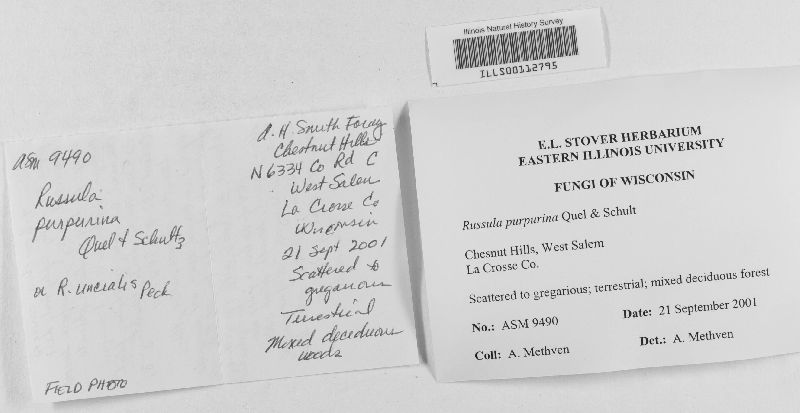 Illinois Natural History Survey
ILLS00112795
ASM 9490
Russula
purpurina
Quel & Schultz
or R. uncialis Peck
FIELD PHOTO
A. H. Smith Foray
Chestnut Hills
N6334 Co Rd C
West Salem
La Crosse Co
Wisconsin
21 Sept 2001
Scattered to
gregarious
Terrestrial
Mixed deciduous
woods
E.L. STOVER HERBARIUM
EASTERN ILLINOIS UNIVERSITY
FUNGI OF WISCONSIN
Russula purpurina Quel & Schult
Chesnut Hills, West Salem
La Crosse Co.
Scattered to gregarious; terrestrial; mixed deciduous forest
No.: ASM 9490 Date: 21 September 2001
Coll: A. Methven Det.: A. Methven